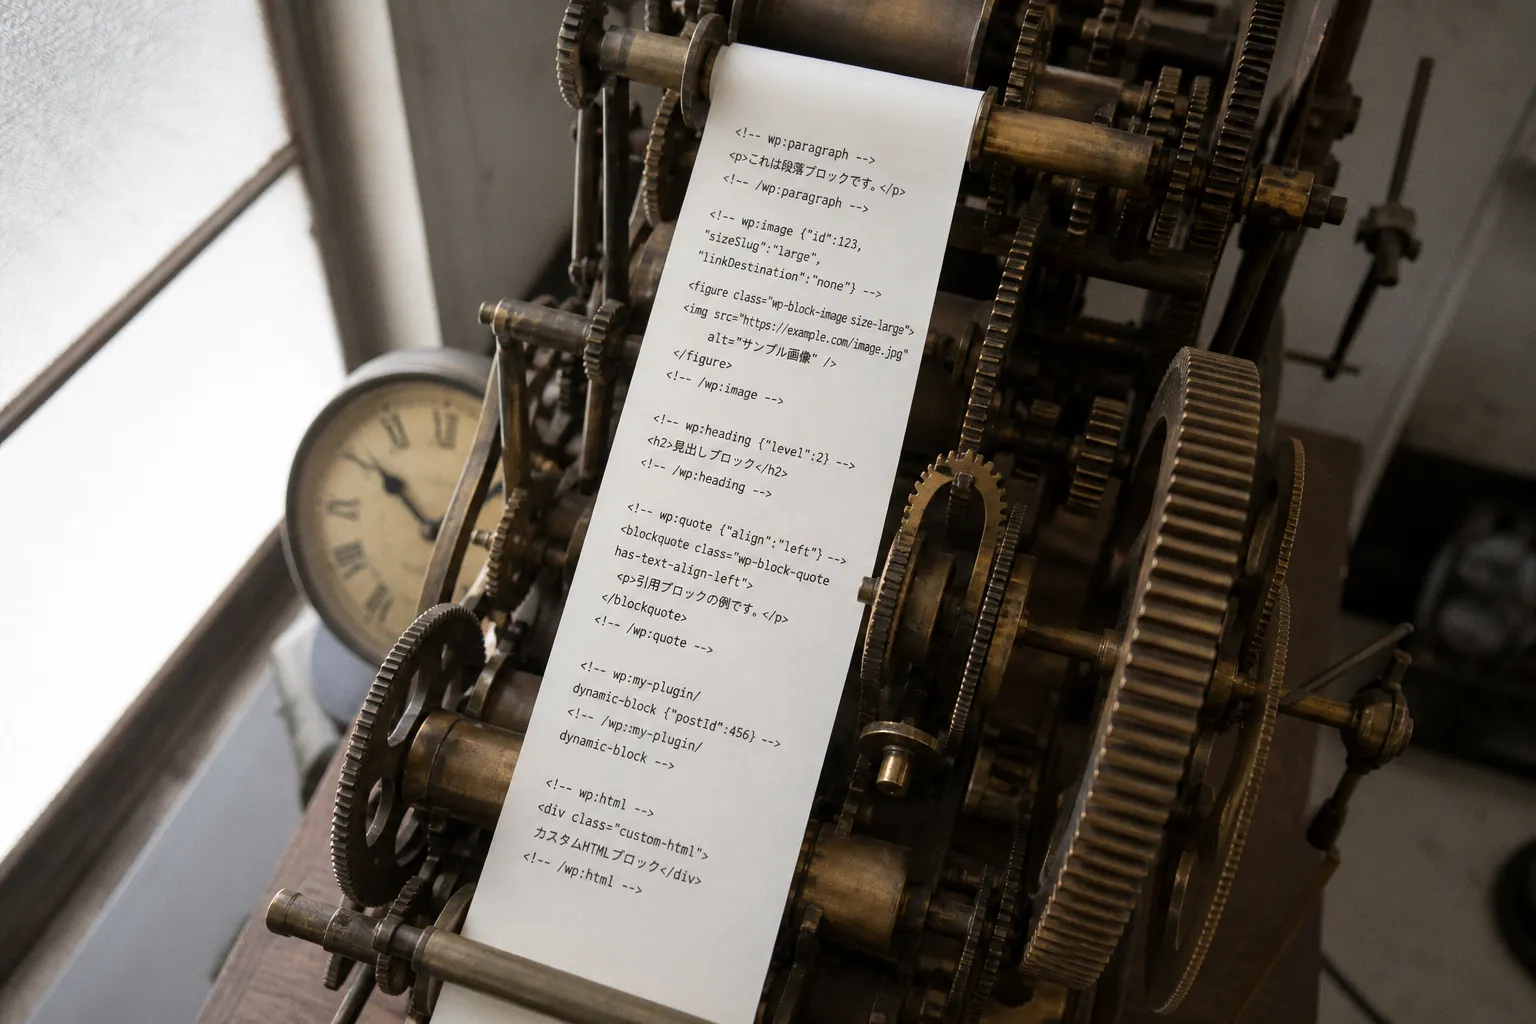 <!-- wp:paragraph -->
<p>これは段落ブロックです。</p>
<!-- /wp:paragraph -->
<!-- wp:image {"id":123,
"sizeSlug":"large",
"linkDestination":"none"} -->
<figure class="wp-block-image size-large">
<img src="https://example.com/image.jpg"
alt="サンプル画像" />
</figure>
<!-- /wp:image -->
<!-- wp:heading {"level":2} -->
<h2>見出しブロック</h2>
<!-- /wp:heading -->
<!-- wp:quote {"align":"left"} -->
<blockquote class="wp-block-quote
has-text-align-left">
<p>引用ブロックの例です。</p>
</blockquote>
<!-- /wp:quote -->
<!-- wp:my-plugin/
dynamic-block {"postId":456} -->
<!-- /wp:my-plugin/
dynamic-block -->
<!-- wp:html -->
<div class="custom-html">
カスタムHTMLブロック</div>
<!-- /wp:html -->